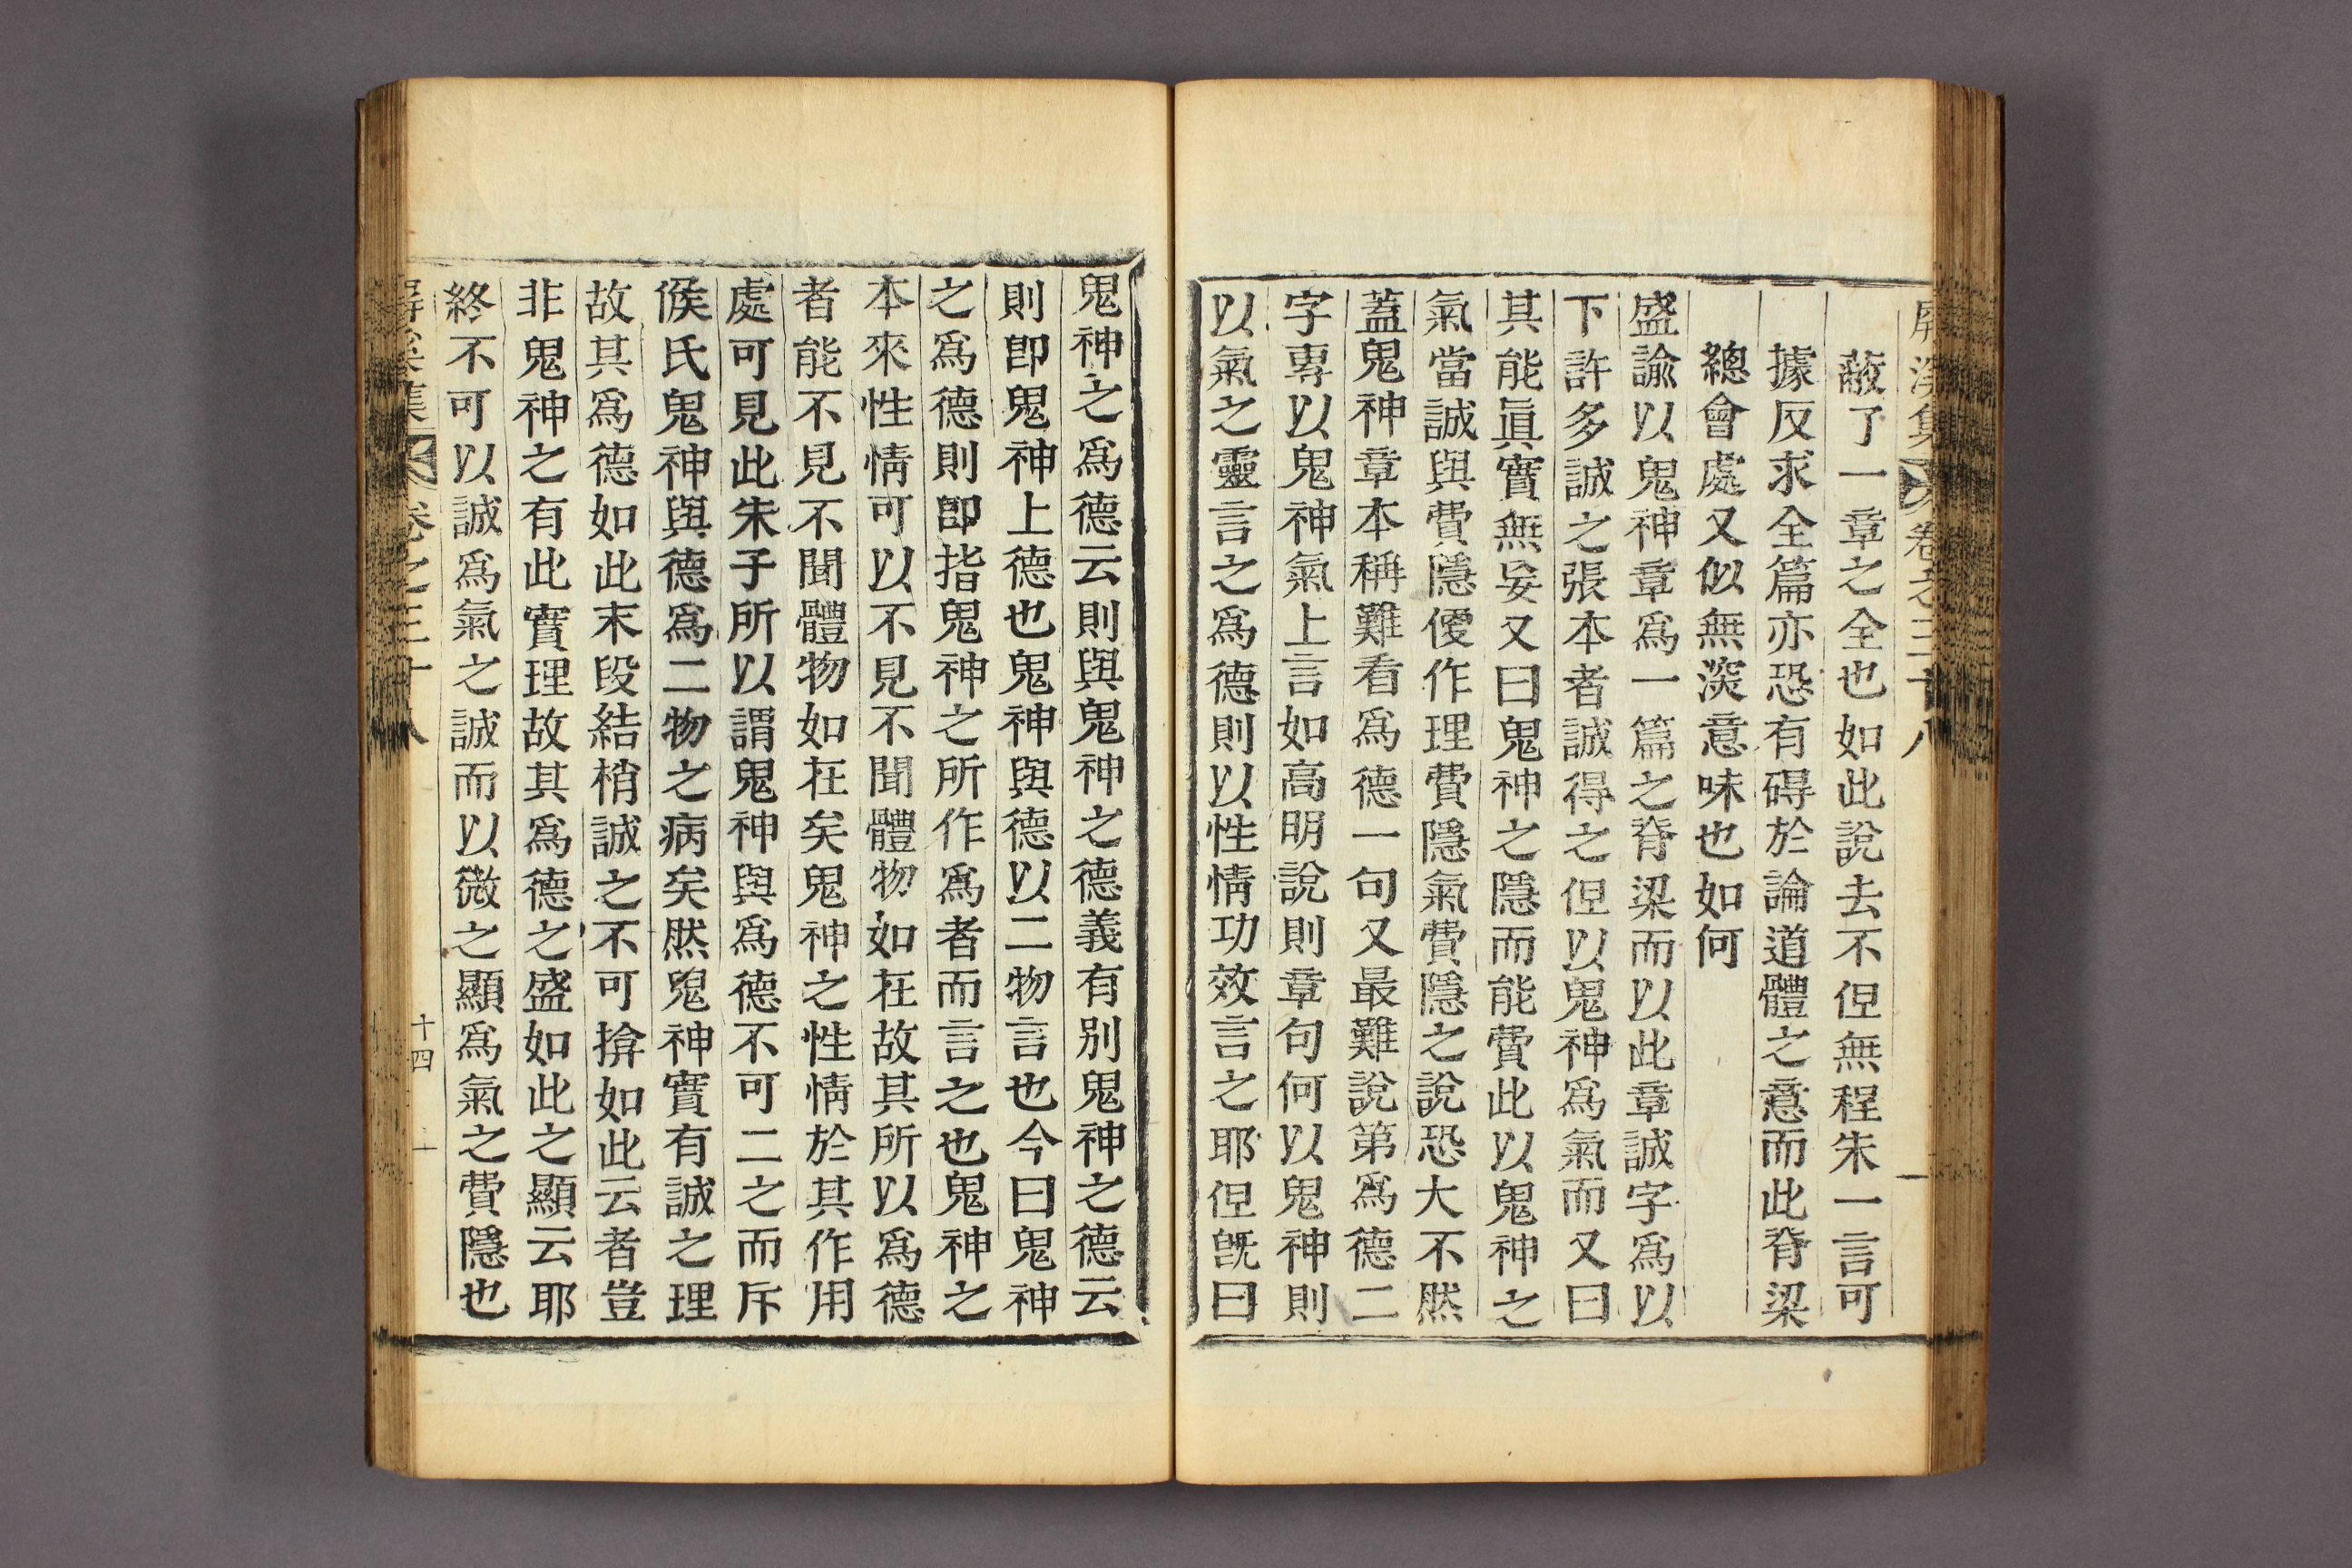 屏溪集 卷之三十八
蔽了一章之全也如此說去不但無程朱一言可
據反求全篇亦恐有碍於論道體之意而此脊梁
總會處又似無深意味也如何
盛諭以鬼神章爲一篇之脊梁而以此章誠字爲以
下許多誠之張本者誠得之但以鬼神爲氣而又曰
其能眞實無妄又曰鬼神之隱而能費此以鬼神之
氣當誠與費隱優作理費隱氣費隱之說恐大不然
蓋鬼神章本稱難看爲德一句又最難說第爲德二
字專以鬼神氣上言如高明說則章句何以鬼神則
以氣之靈言之爲德則以性情功效言之耶但旣曰
鬼神之爲德云則與鬼神之德義有別鬼神之德云
則卽鬼神上德也鬼神與德以二物言也今曰鬼神
之爲德則卽指鬼神之所作爲者而言之也鬼神之
本來性情可以不見不聞體物如在故其所以爲德
者能不見不聞體物如在矣鬼神之性情於其作用
處可見此朱子所以謂鬼神與爲德不可二之而斥
侯氏鬼神與德爲二物之病矣然鬼神實有誠之理
故其爲德如此末段結梢誠之不可揜如此云者豈
非鬼神之有此實理故其爲德之盛如此之顯云耶
終不可以誠爲氣之誠而以微之顯爲氣之費隱也
屏溪集 卷之三十八 十四